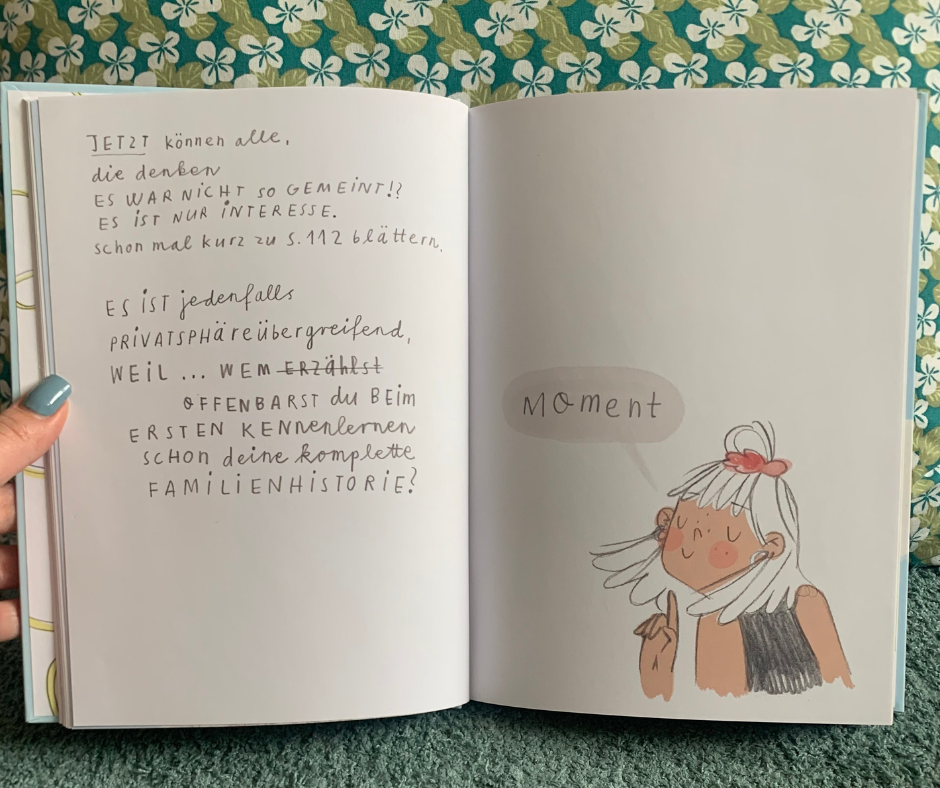 JETZT können alle,
die denken
ES WAR NICHT SO GEMEINT!?
ES IST NUR INTERESSE.
schon mal kurz zu S. 112 blättern.
ES IST jedenfalls
PRIVATSPHäreübergreifend,
WEIL ... WEM ERZählst
OFFENBARST du BEim
ERSTEN KENNENlernen
SCHON deine komplette
FAMILIENHISTORIE?
Moment